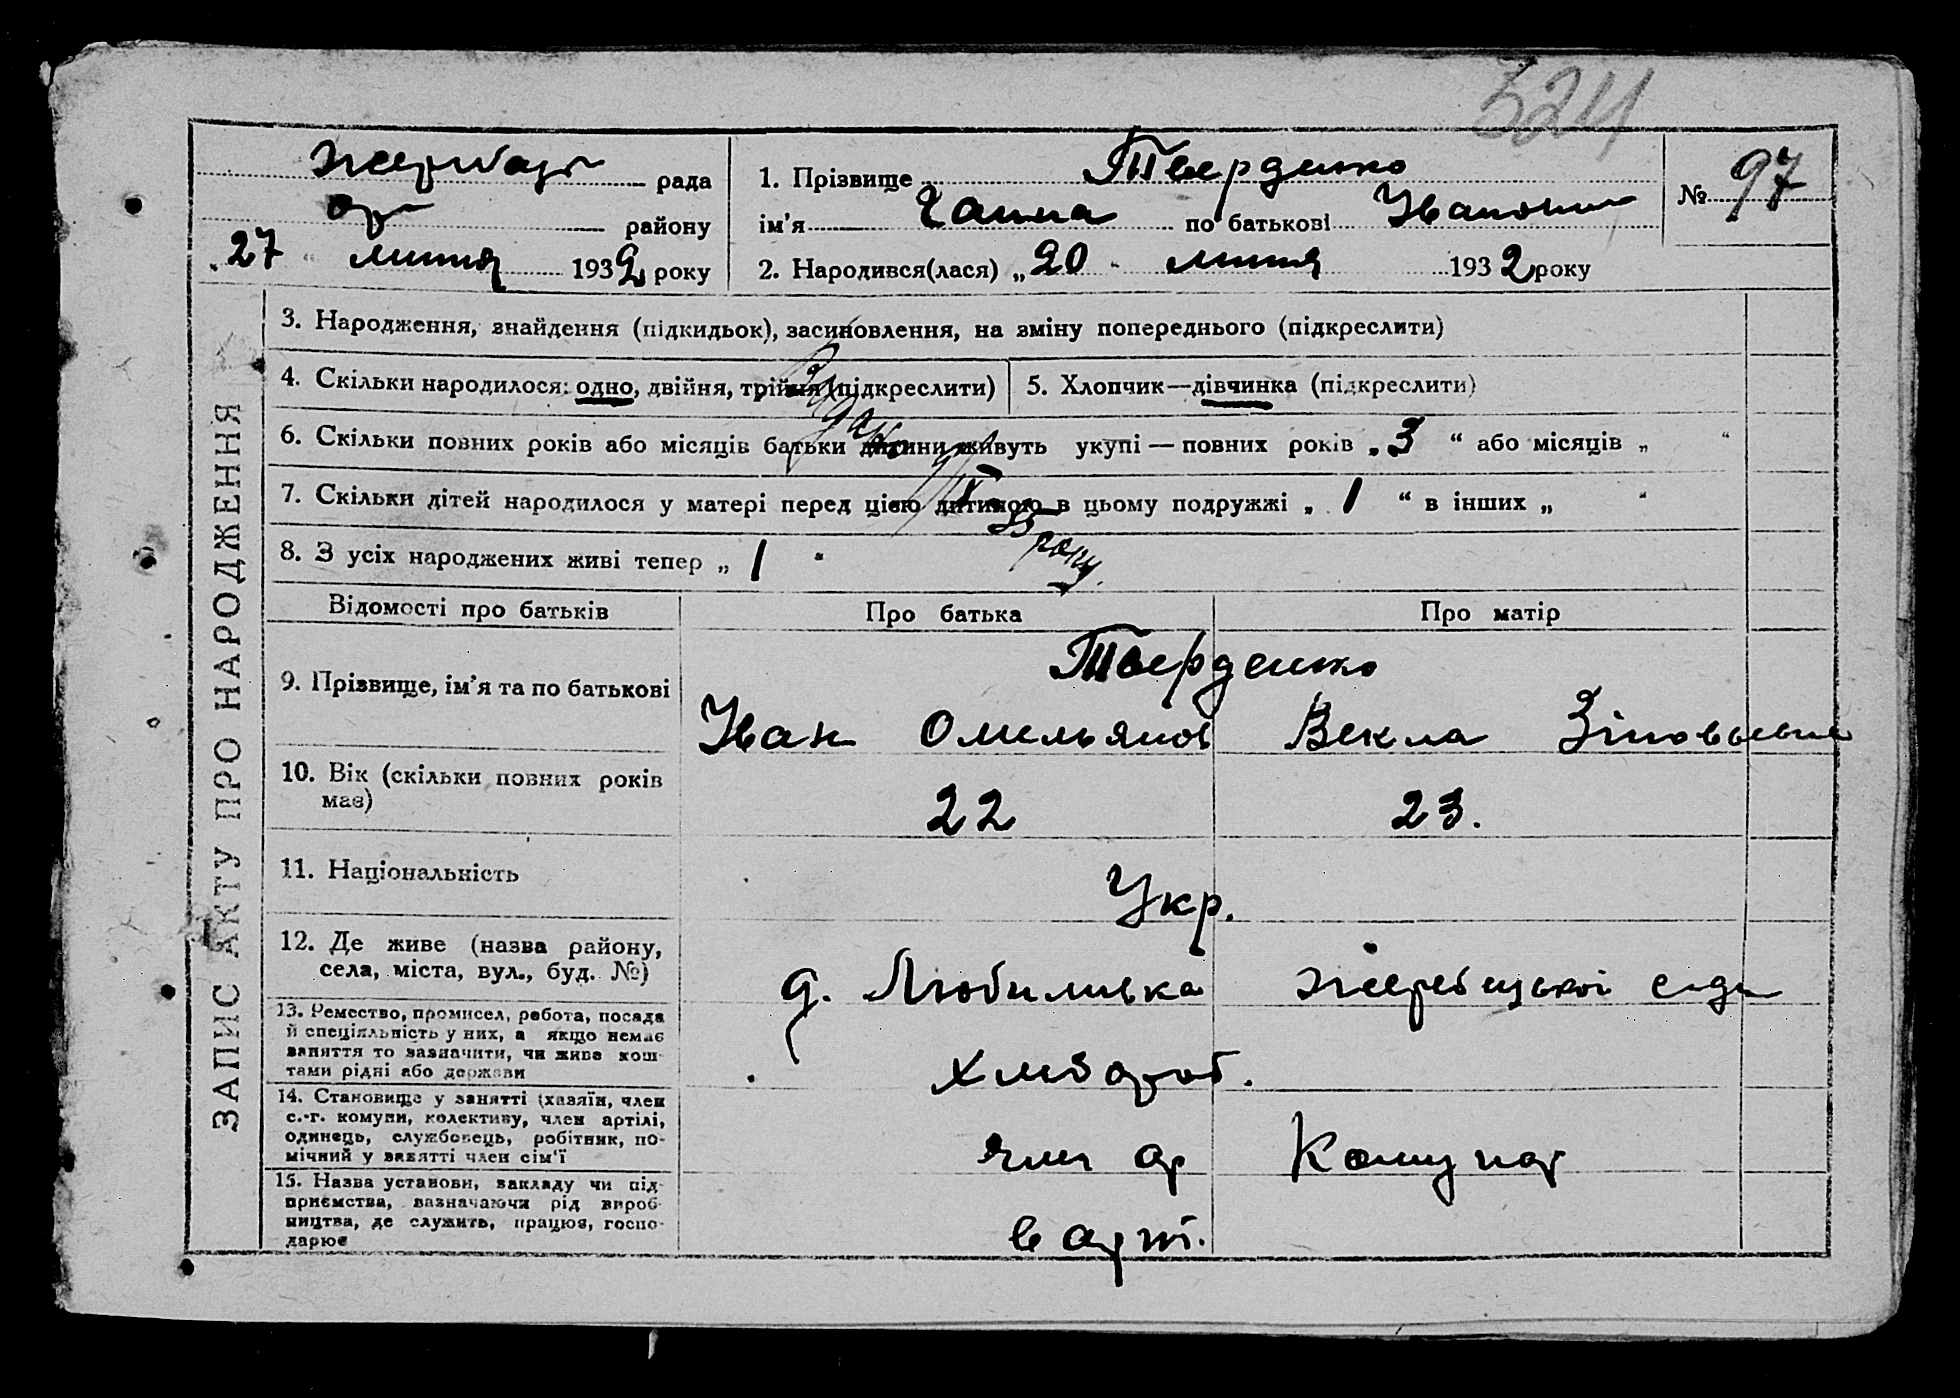 324
рада
району
27 " липня 1932 року
1. Прізвище Тверденко
ім'я Ганна по батькові Іванівна
2. Народився(лася) „20 " липня 1932 року
№ 97
ЗАПИС АКТУ ПРО НАРОДЖЕННЯ
3. Народження, знайдення (підкидьок), засиновлення, на зміну попереднього (підкреслити)
4. Скільки народилося: одно, двійня, трійня (підкреслити)
5. Хлопчик—дівчинка (підкреслити)
6. Скільки повних років або місяців батьки дитини живуть укупі — повних років „3 " або місяців „ "
7. Скільки дітей народилося у матері перед цією дитиною в цьому подружжі „ 1 " в інших „ "
8. З усіх народжених живі тепер „ 1 "
Відомості про батьків
Про батька
Про матір
9. Прізвище, ім'я та по батькові
Тверденко
Іван Омельянов
Векла Зіновьевна
10. Вік (скільки повних років
має)
22
23.
11. Національність
Укр.
12. Де живе (назва району,
села, міста, вул., буд. №)
д. Любимівка Жеребецької
13. Ремество, промисел, робота, посада
й спеціяльність у них, а якщо немає
заняття то зазначити, чи живе кош-
тами рідні або держави
Хлібороб.
14. Становище у занятті (хазяїн, член
с.-г. комуни, колективу, член артілі,
одинець, службовець, робітник, по-
мічний у занятті член сім'ї
член ар Комунар
15. Назва установи, закладу чи під-
приємства, зазначаючи рід вироб-
ництва, де служить, працює, госпо-
дарює
в арт.